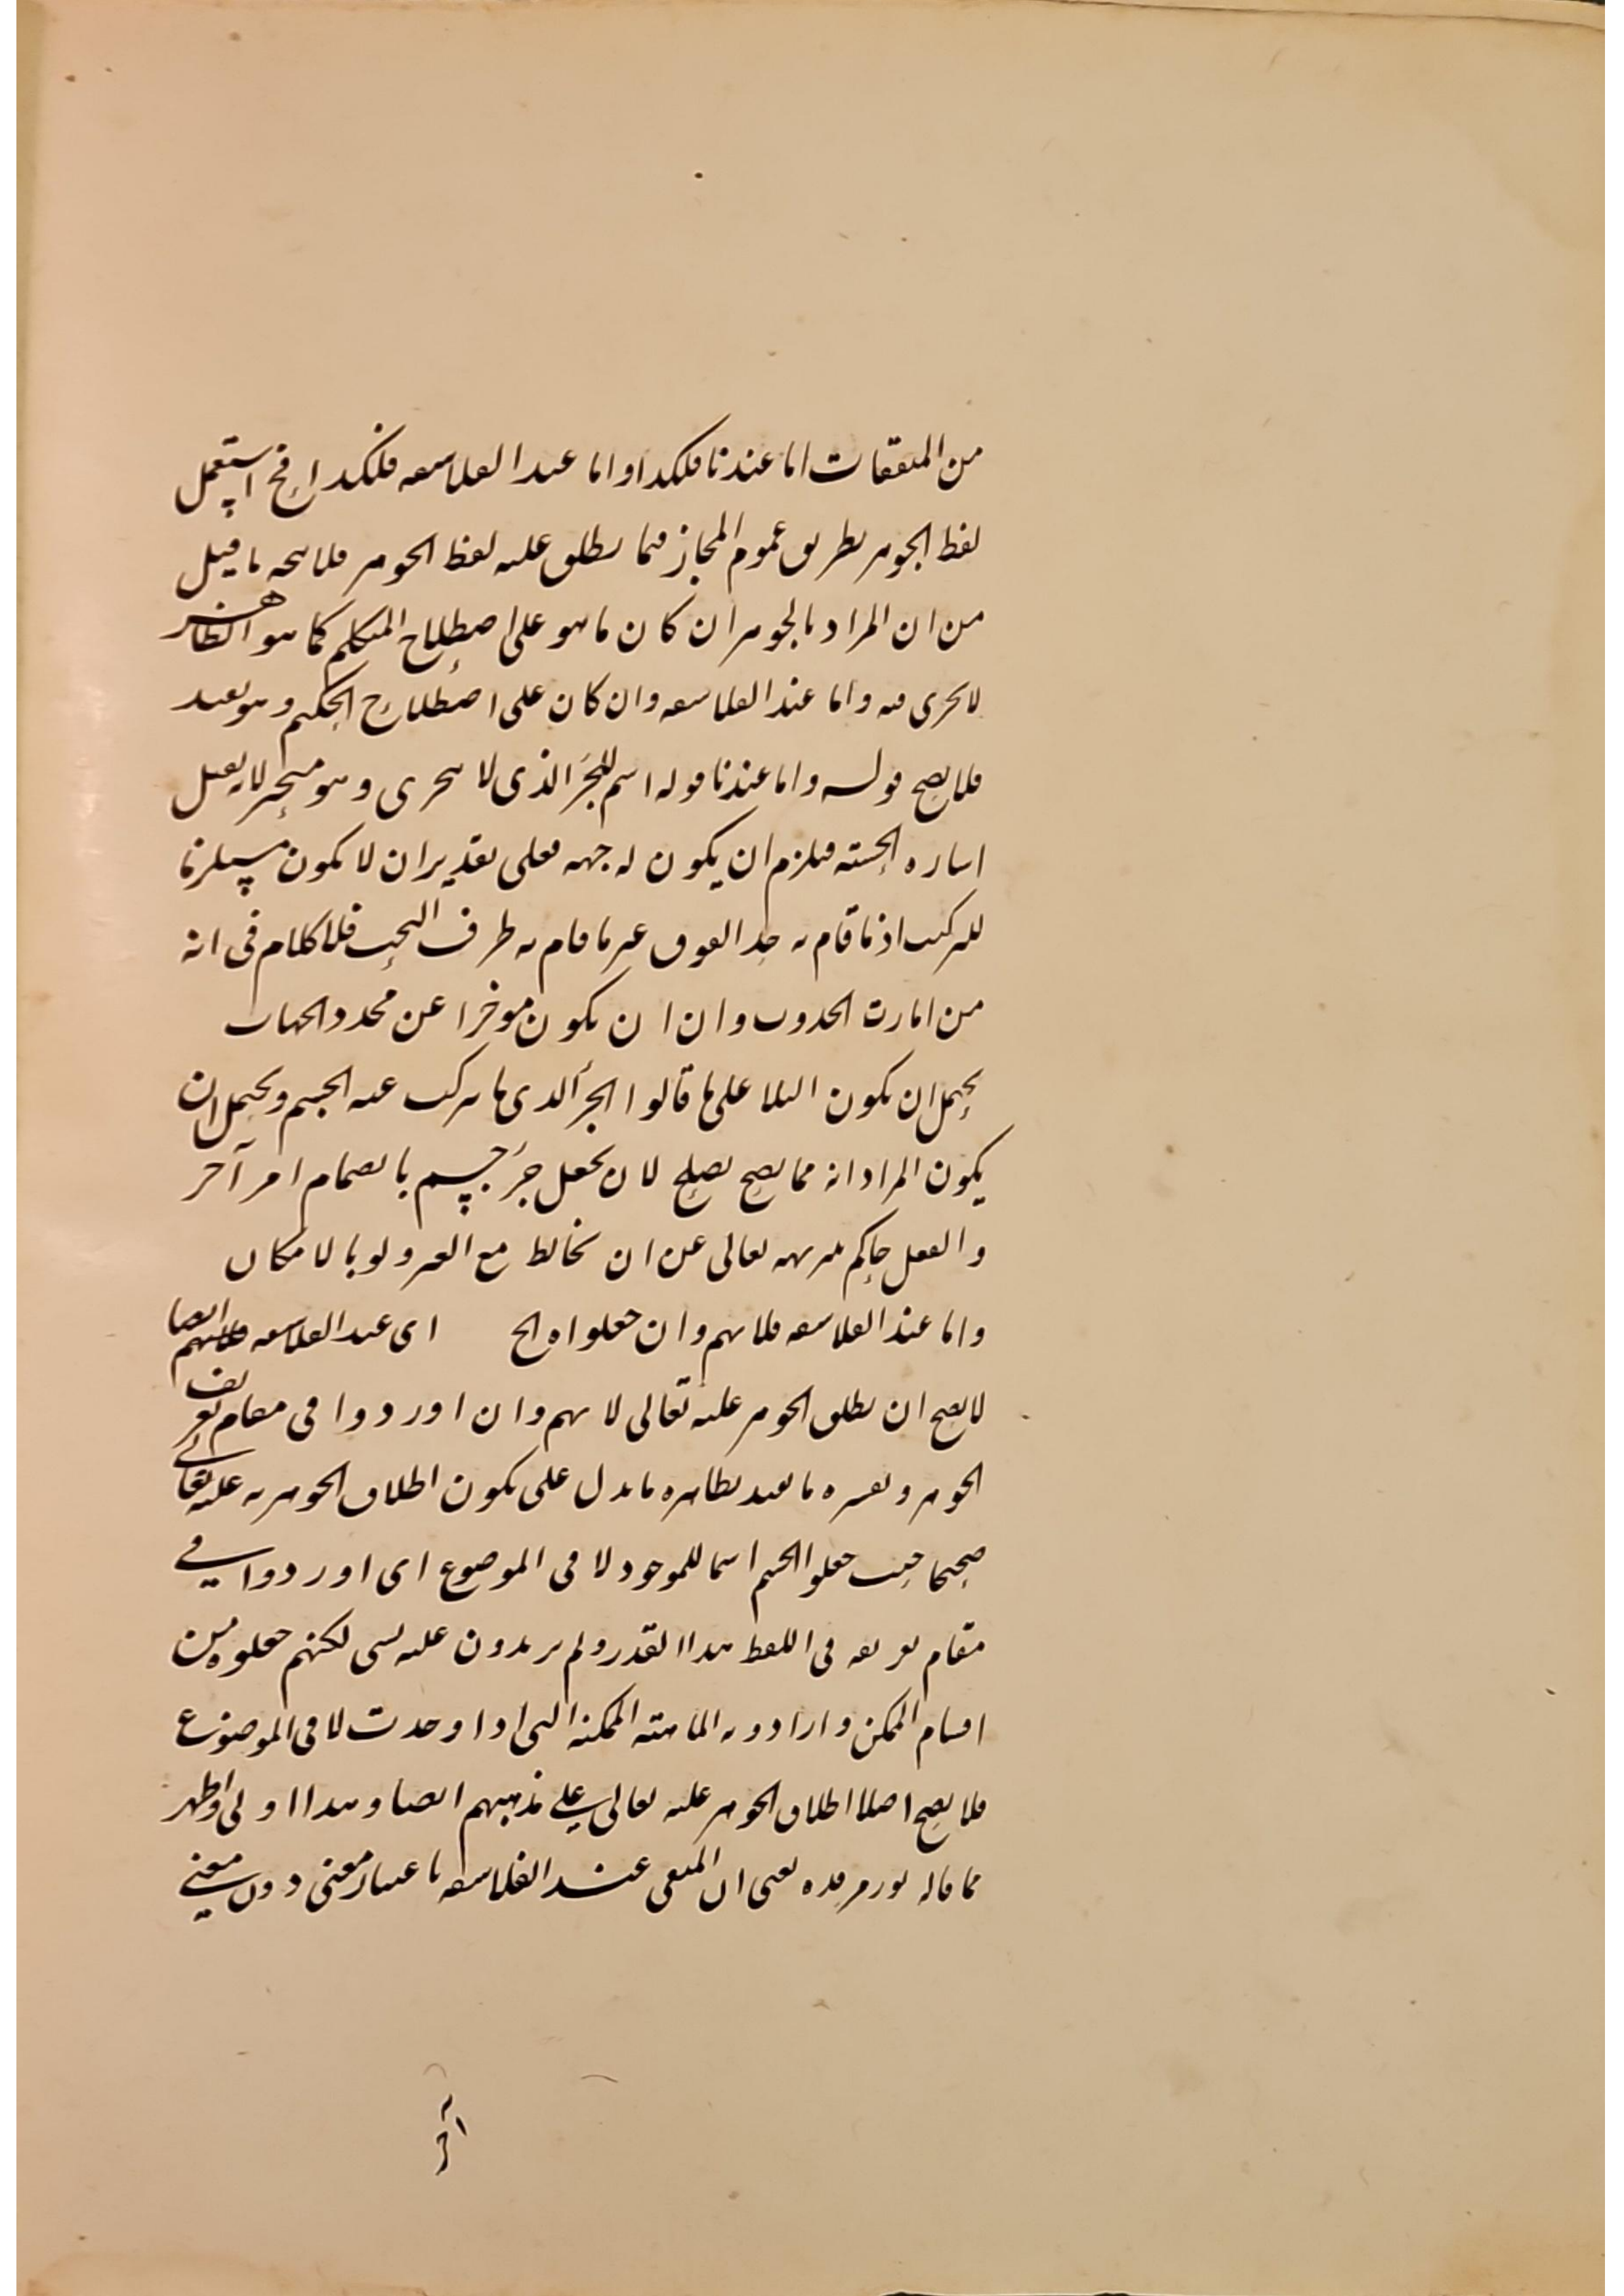 من المتفقات اما عندنا فلكذا واما عند الفلاسفه فلكذا فح استعمل
لفظ الجوهر بطريق عموم المجاز فيما يطلق عليه لفظ الجوهر فلا يتجه ما قيل
من ان المراد بالجوهر ان كان ما هو على اصطلاح المتكلم كما هو الظاهر
لا يجرى فيه واما عند الفلاسفه وان كان على اصطلاح الحكيم وهو بعيد
فلا يصح قوله واما عندنا قوله اسم للجزء الذى لا يتجزى وهو متحيز لانه يقبل
اشاره الحسيه فيلزم ان يكون له جهه فعلى تقدير ان لا يكون مستلزما
للتركيب اذ ما قام به حد الفوق غير ما قام به طرف التحت فلا كلام فى انه
من امارت الحدوث وان ان يكون موخرا عن محدد الجهات
يحتمل ان يكون البلا على ما قالوا الجزء الذى ما يتركب عنه الجسم ويحتمل ان
يكون المراد انه مما يصح يصلح لان يجعل جزء جسم بانضمام امر آخر
والعقل حاكم بتنزيهه تعالى عن ان يخالط مع الغير ولو بالامكان
واما عند الفلاسفه فلانهم وان جعلواه الخ اى عند الفلاسفه ايضا
لا يصح ان يطلق الجوهر عليه تعالى لانهم وان اوردوا فى مقام تعريف
الجوهر وتفسيره ما يفيد بظاهره ما يدل على يكون اطلاق الجوهر به عليه تعالى
صحيحا حيث جعلوا الجسم اسما للموجود لا فى الموضوع اى اوردوا فى
مقام تعريفه فى اللفظ هذا القدر ولم يزيدون عليه بشى لكنهم جعلوه من
اقسام الممكن وارادو به الماهيته الممكنه التى اذا وجدت لا فى الموضوع
فلا يصح اصلا اطلاق الجوهر عليه تعالى على مذهبهم ايضا وهذا اولى واظهر
مما قاله يعنى ان المنفى عند الفلاسفه باعتبار معنى دون معنى
آخر